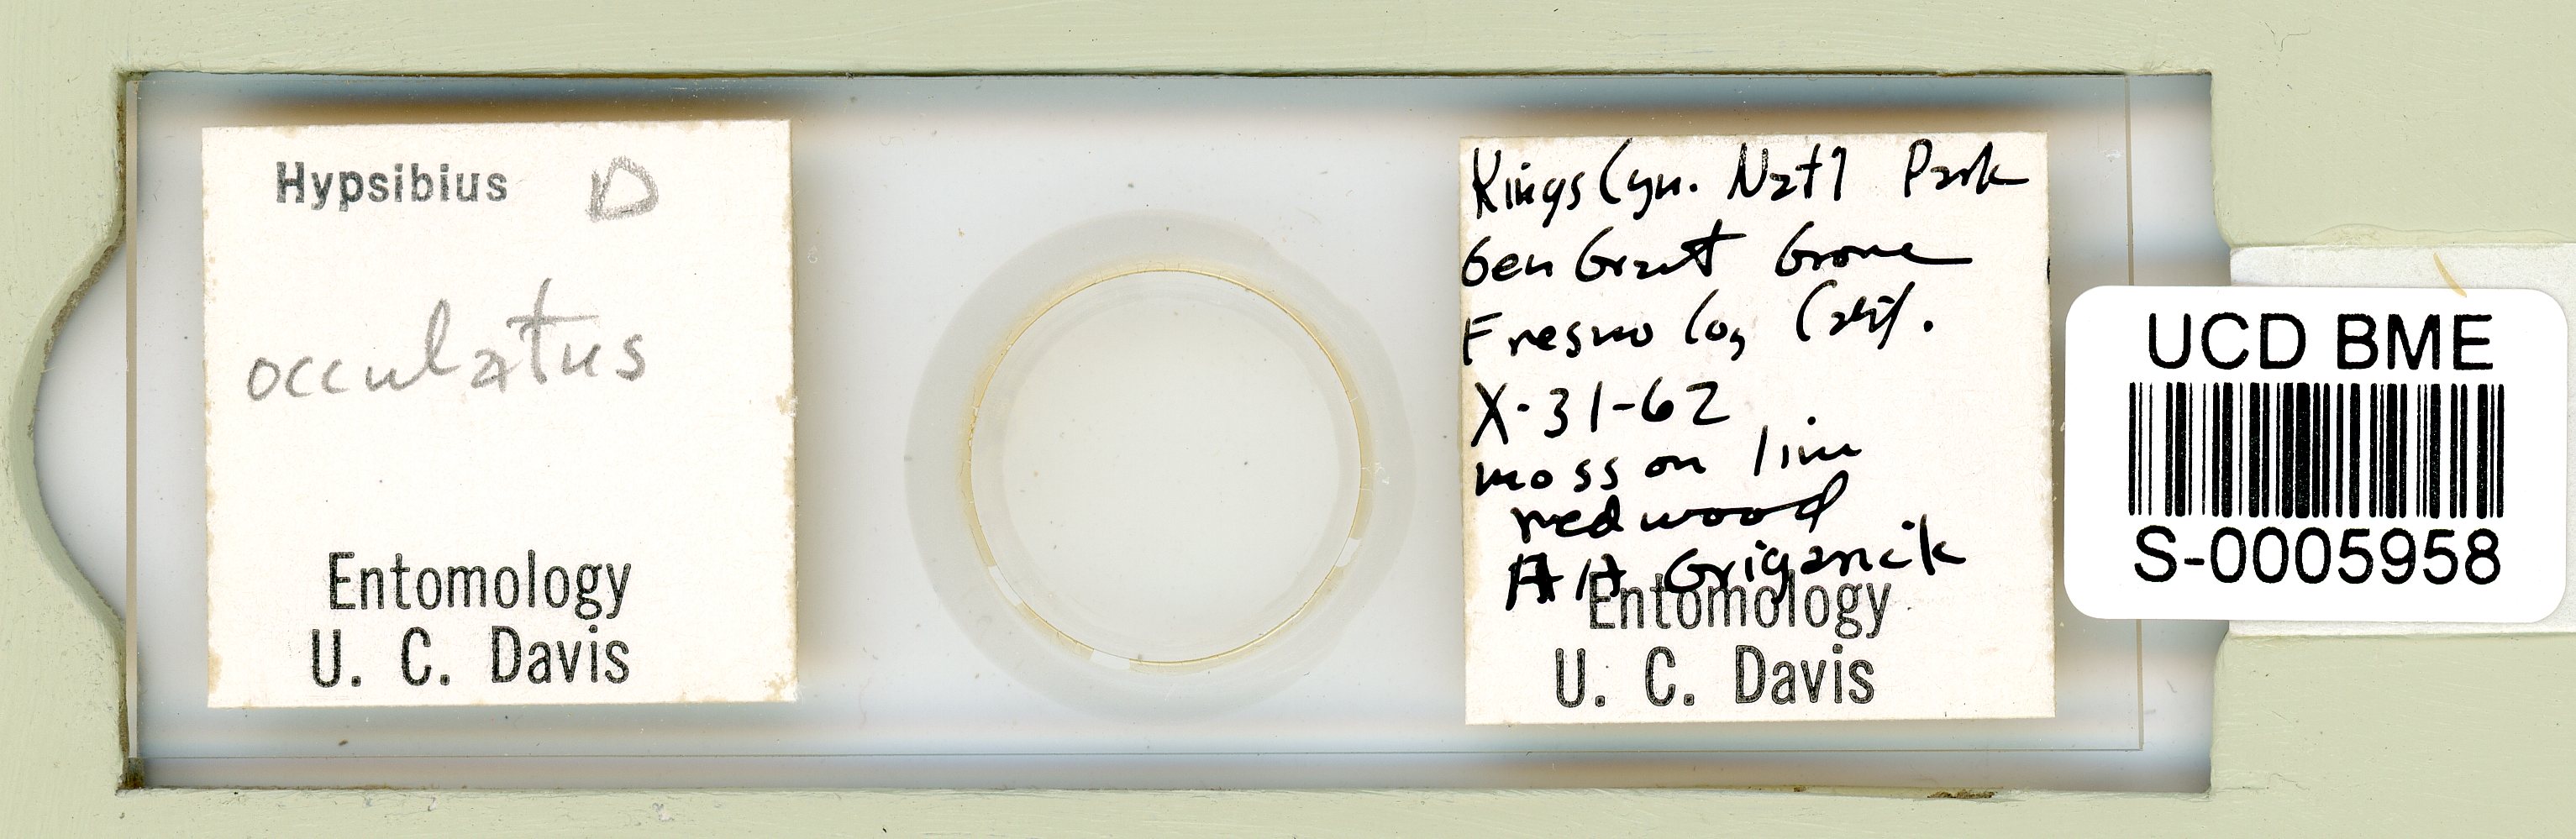 Hypsibius D
occulatus
Entomology
U. C. Davis
Kings Cyn. Nat'l Park
Gen Grant Grove
Fresno Co, Calif.
X-31-62
moss on live
redwood
A A Grigarick
Entomology
U. C. Davis
UCD BME
S-0005958